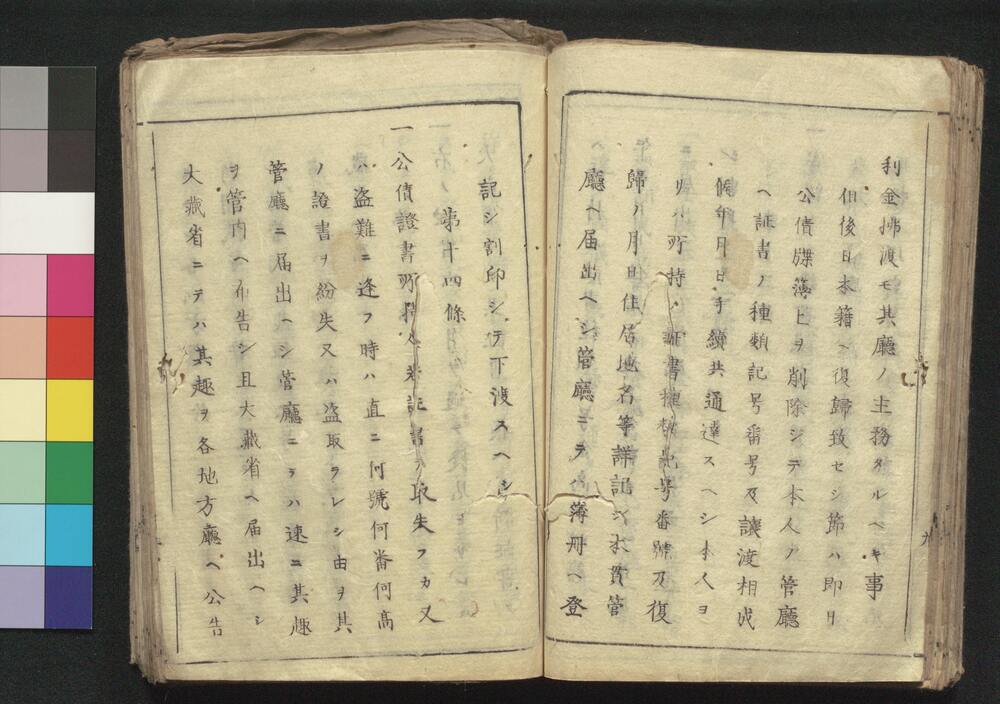 利金拂渡モ其廳ノ主務タルヘキ事
但後日本籍ヘ復歸致セシ節ハ即日
公債牒簿上ヲ削除シテ本人ノ管廳
ヘ証書ノ種類記号番号及讓渡相成
候年月日手續共通達スヘシ本人ヨ
リハ所持ノ証書種類記号番號及復
歸ノ月日住居地名等詳記シ本貫管
廳ヘ届出ヘシ管廳ニテハ簿册ヘ登
記シ割印シテ下渡スヘシ
第十四條
一公債證書所持人若証書ヲ取失フカ又
ハ盗難ニ逢フ時ハ直ニ何號何番何高
ノ證書ヲ紛失又ハ盗取ラレシ由ヲ其
管廳ニ届出ヘシ管廳ニテハ速ニ其趣
ヲ管内ヘ布告シ且大藏省ヘ届出ヘシ
大藏省ニテハ其趣ヲ各地方廳ヘ公告
九